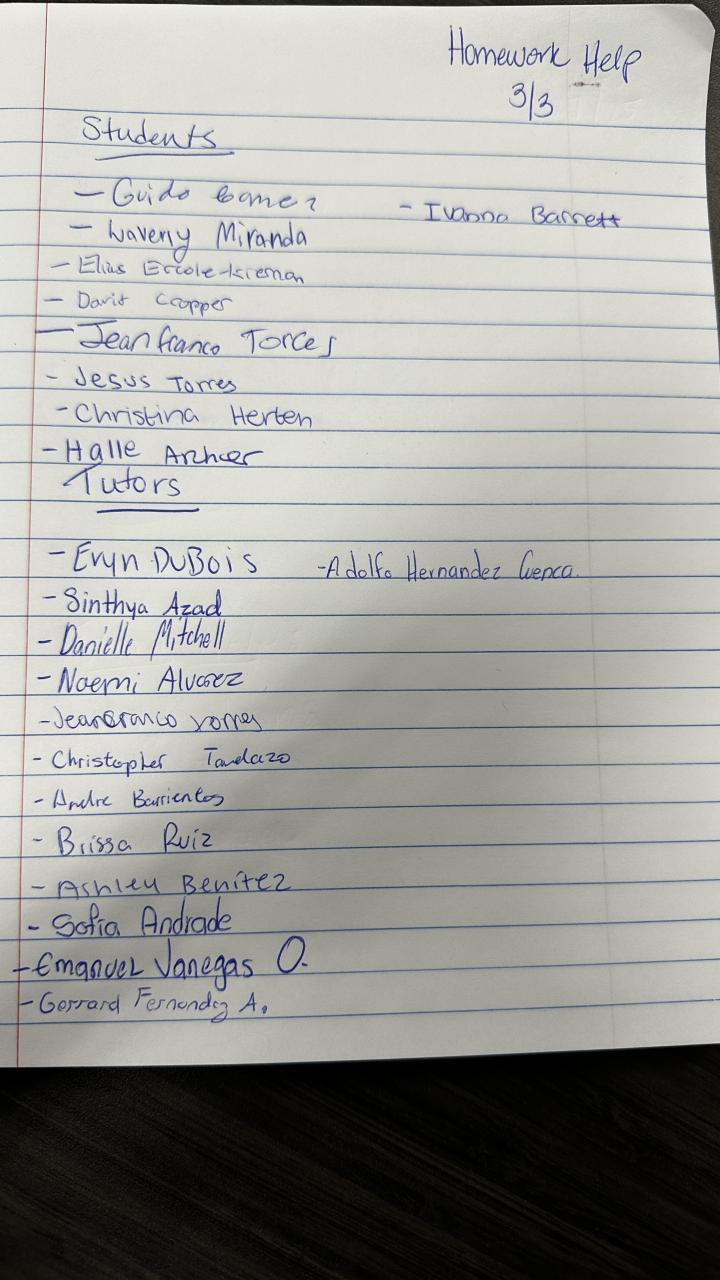 Homework Help
3/3
Students
- Guido Gomez - Ivanna Barrett
- Waverly Miranda
- Elius Ercole-Kreman
- David Cropper
- Jeanfranco Torres
- Jesus Torres
- Christina Herten
- Halle Archer
Tutors
- Eryn DuBois - Adolfo Hernandez Cuenca.
- Sinthya Azad
- Danielle Mitchell
- Noemi Alvarez
- Jeanfranco Torres
- Christopher Tandazo
- Andre Barrientos
- Brissa Ruiz
- Ashley Benitez
- Sofia Andrade
- Emanuel Vanegas O.
- Gerrard Fernandez A.